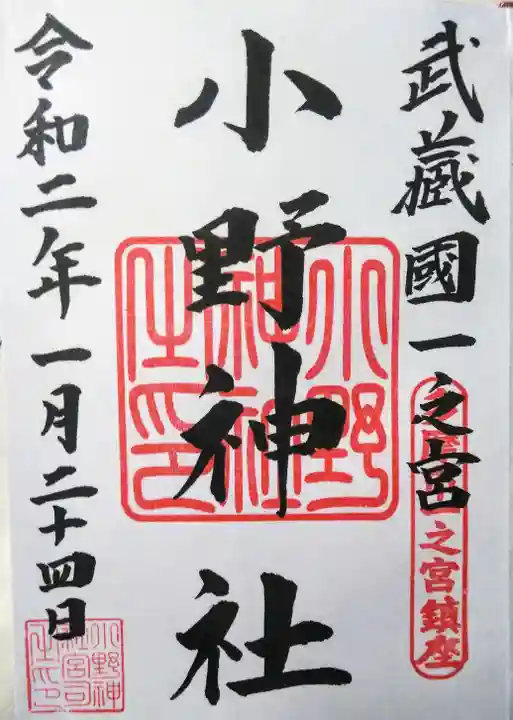 武蔵國一之宮
之宮鎮座
小野神社
小野
神社
令和二年一月二十四日
小野神
社宮司
之印